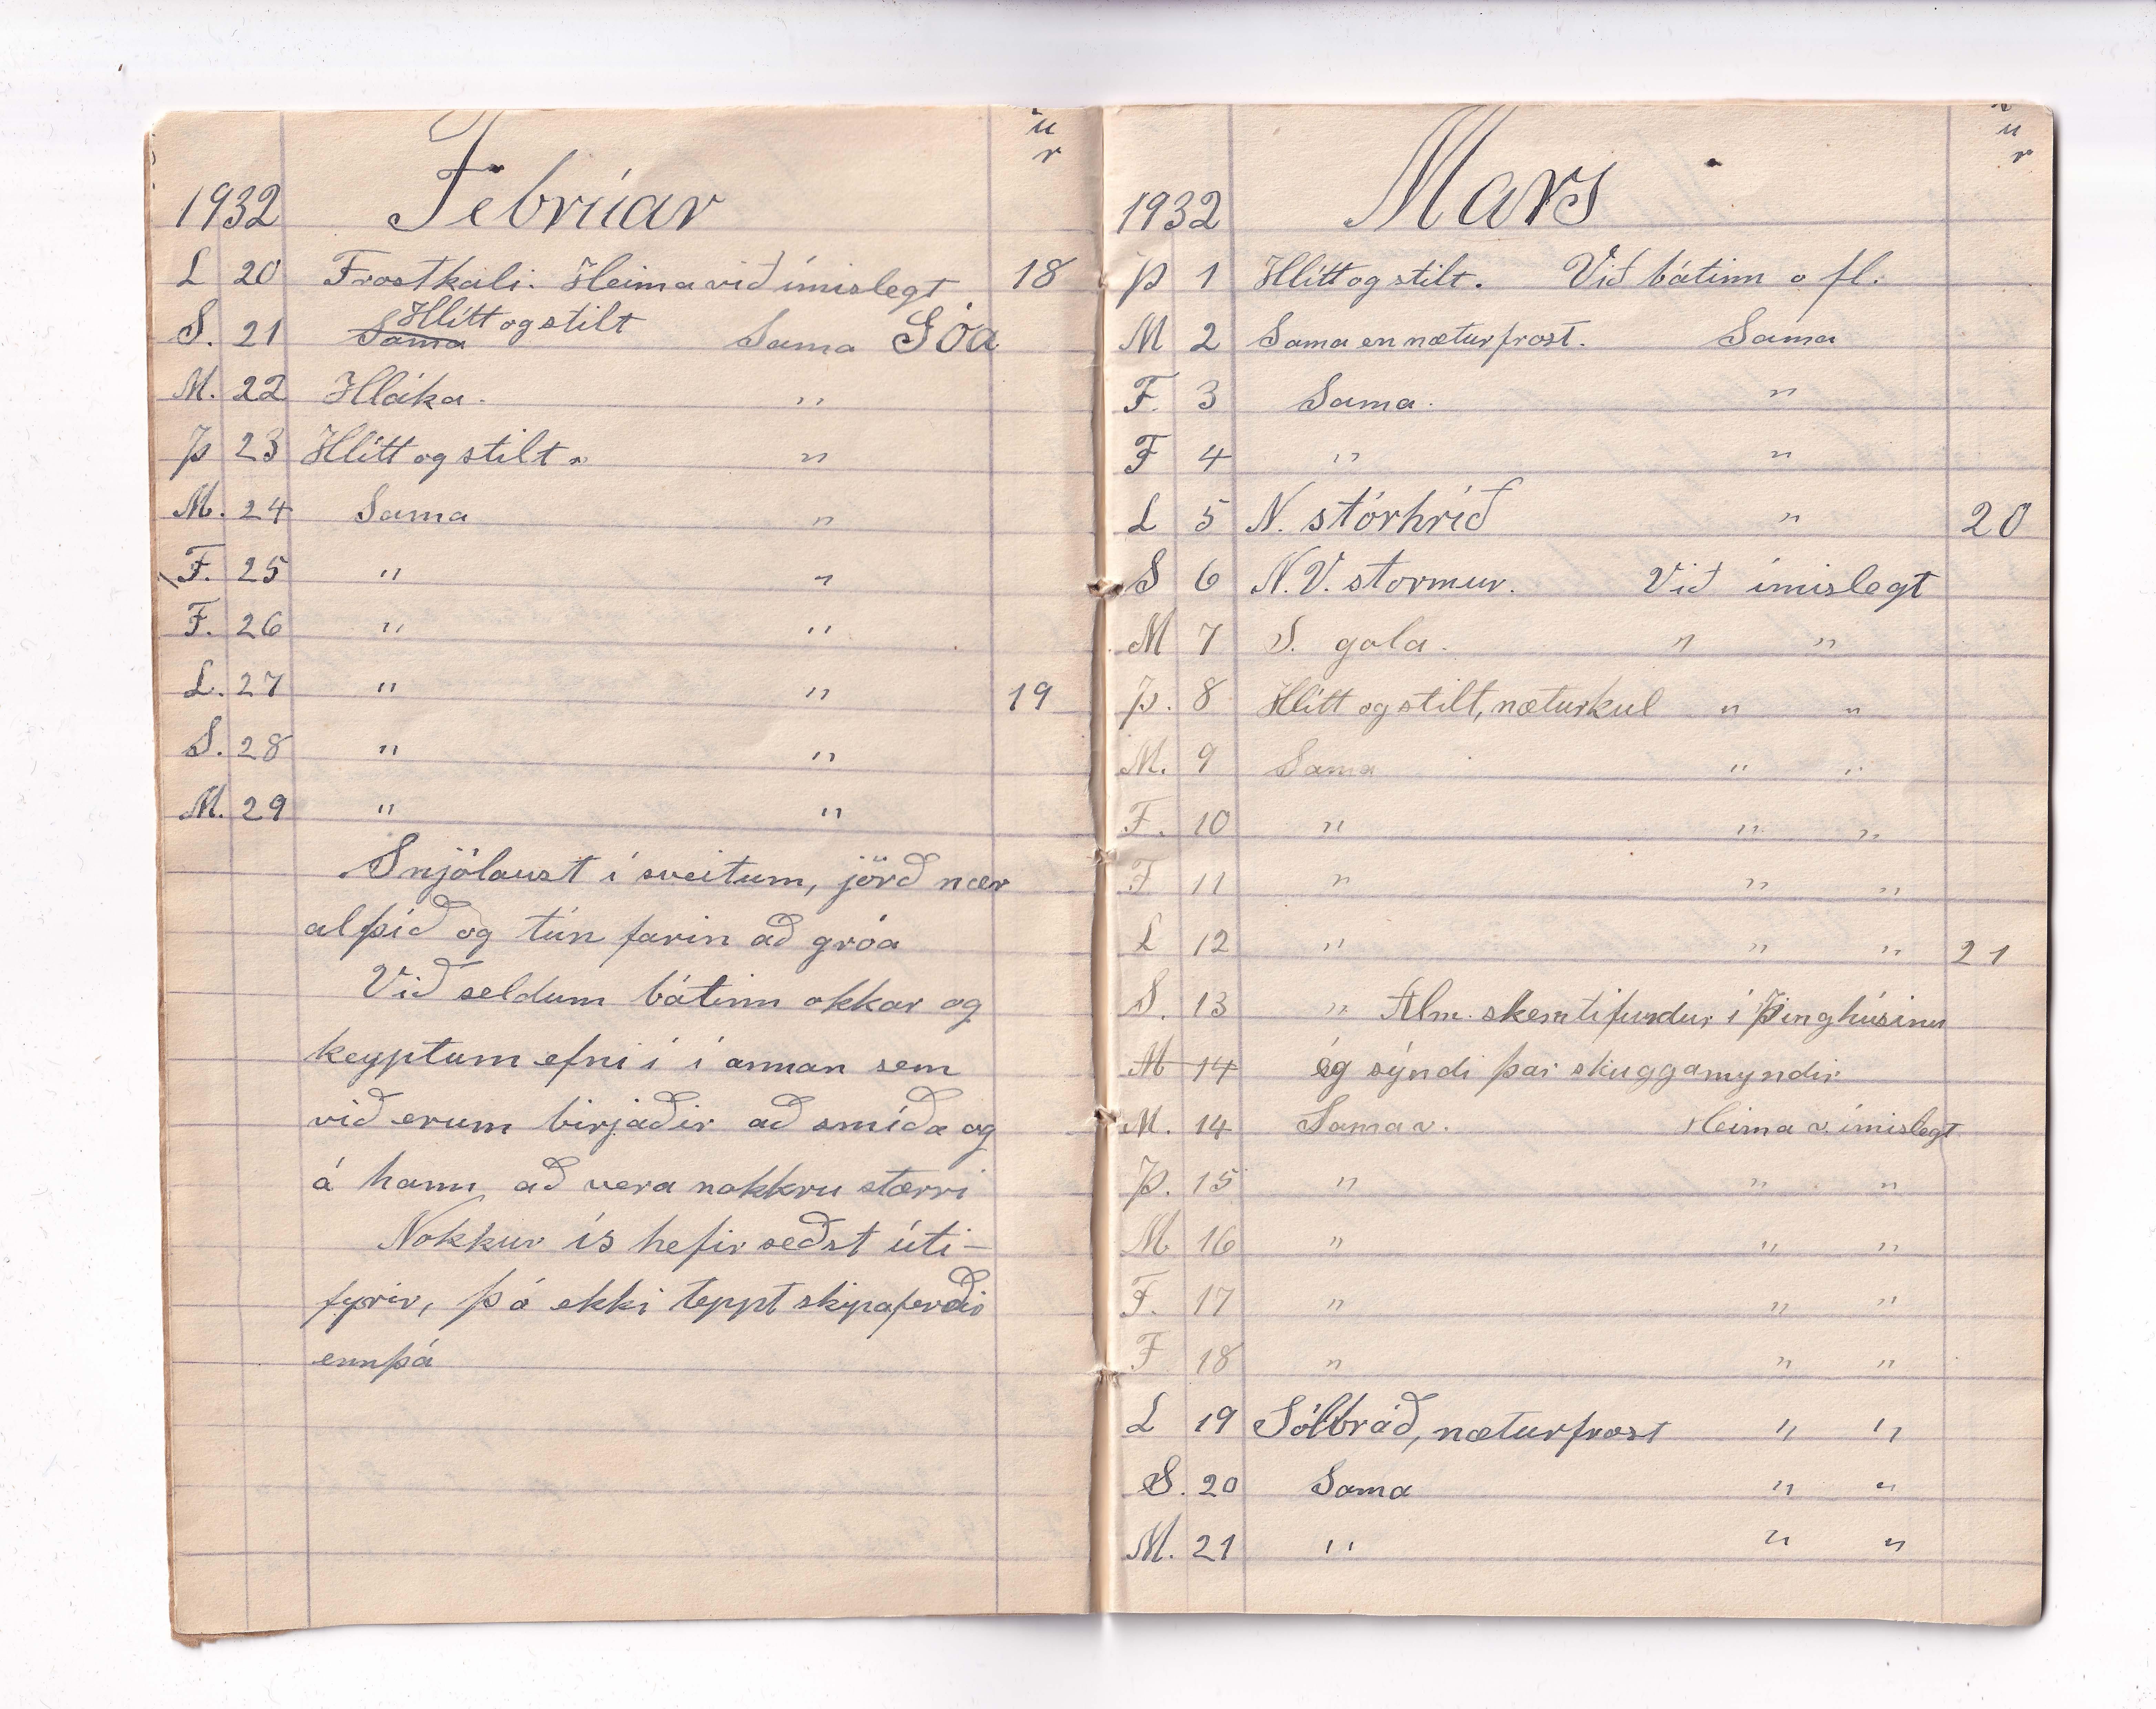 u
r
1932 Febrúar
L 20 Frostkali. Heima við ímislegt 18
S. 21 Sama Hlítt og stilt Sama Góa
M. 22 Hláka. "
Þ 23 Hlítt og stilt. "
M. 24 Sama "
F. 25 " "
F. 26 " "
L. 27 " " 19
S. 28 " "
M. 29 " "
Snjólaust í sveitum, jörð nær
alþíð og tún farin að gróa
Við seldum bátinn okkar og
keyptum efni í í annan sem
við erum birjaðir að smíða og
á hann að vera nokkru stærri
Nokkur ís hefir seðst úti-
fyrir, þó ekki teppt skipaferðir
ennþá
u
r
1932 Mars
Þ 1 Hlítt og stilt. Við bátinn o fl.
M 2 Sama en næturfrost. Sama
F. 3 Sama. "
F 4 " "
L 5 N. stórhríð " 20
S 6 N.V. stormur. Við ímislegt
M 7 S. gola. " "
Þ. 8 Hlítt og stilt, næturkul " "
M. 9 Sama " "
F. 10 " " "
F 11 " " "
L 12 " " " 21
S. 13 " Alm. skemtifundur í Þinghúsinu
M 14 ég sýndi þar skuggamyndir
M. 14 Sama v. Heima v. ímislegt
Þ. 15 " " "
M 16 " " "
F. 17 " " "
F 18 " " "
L 19 Sólbráð, næturfrost " "
S. 20 Sama " "
M. 21 " " "